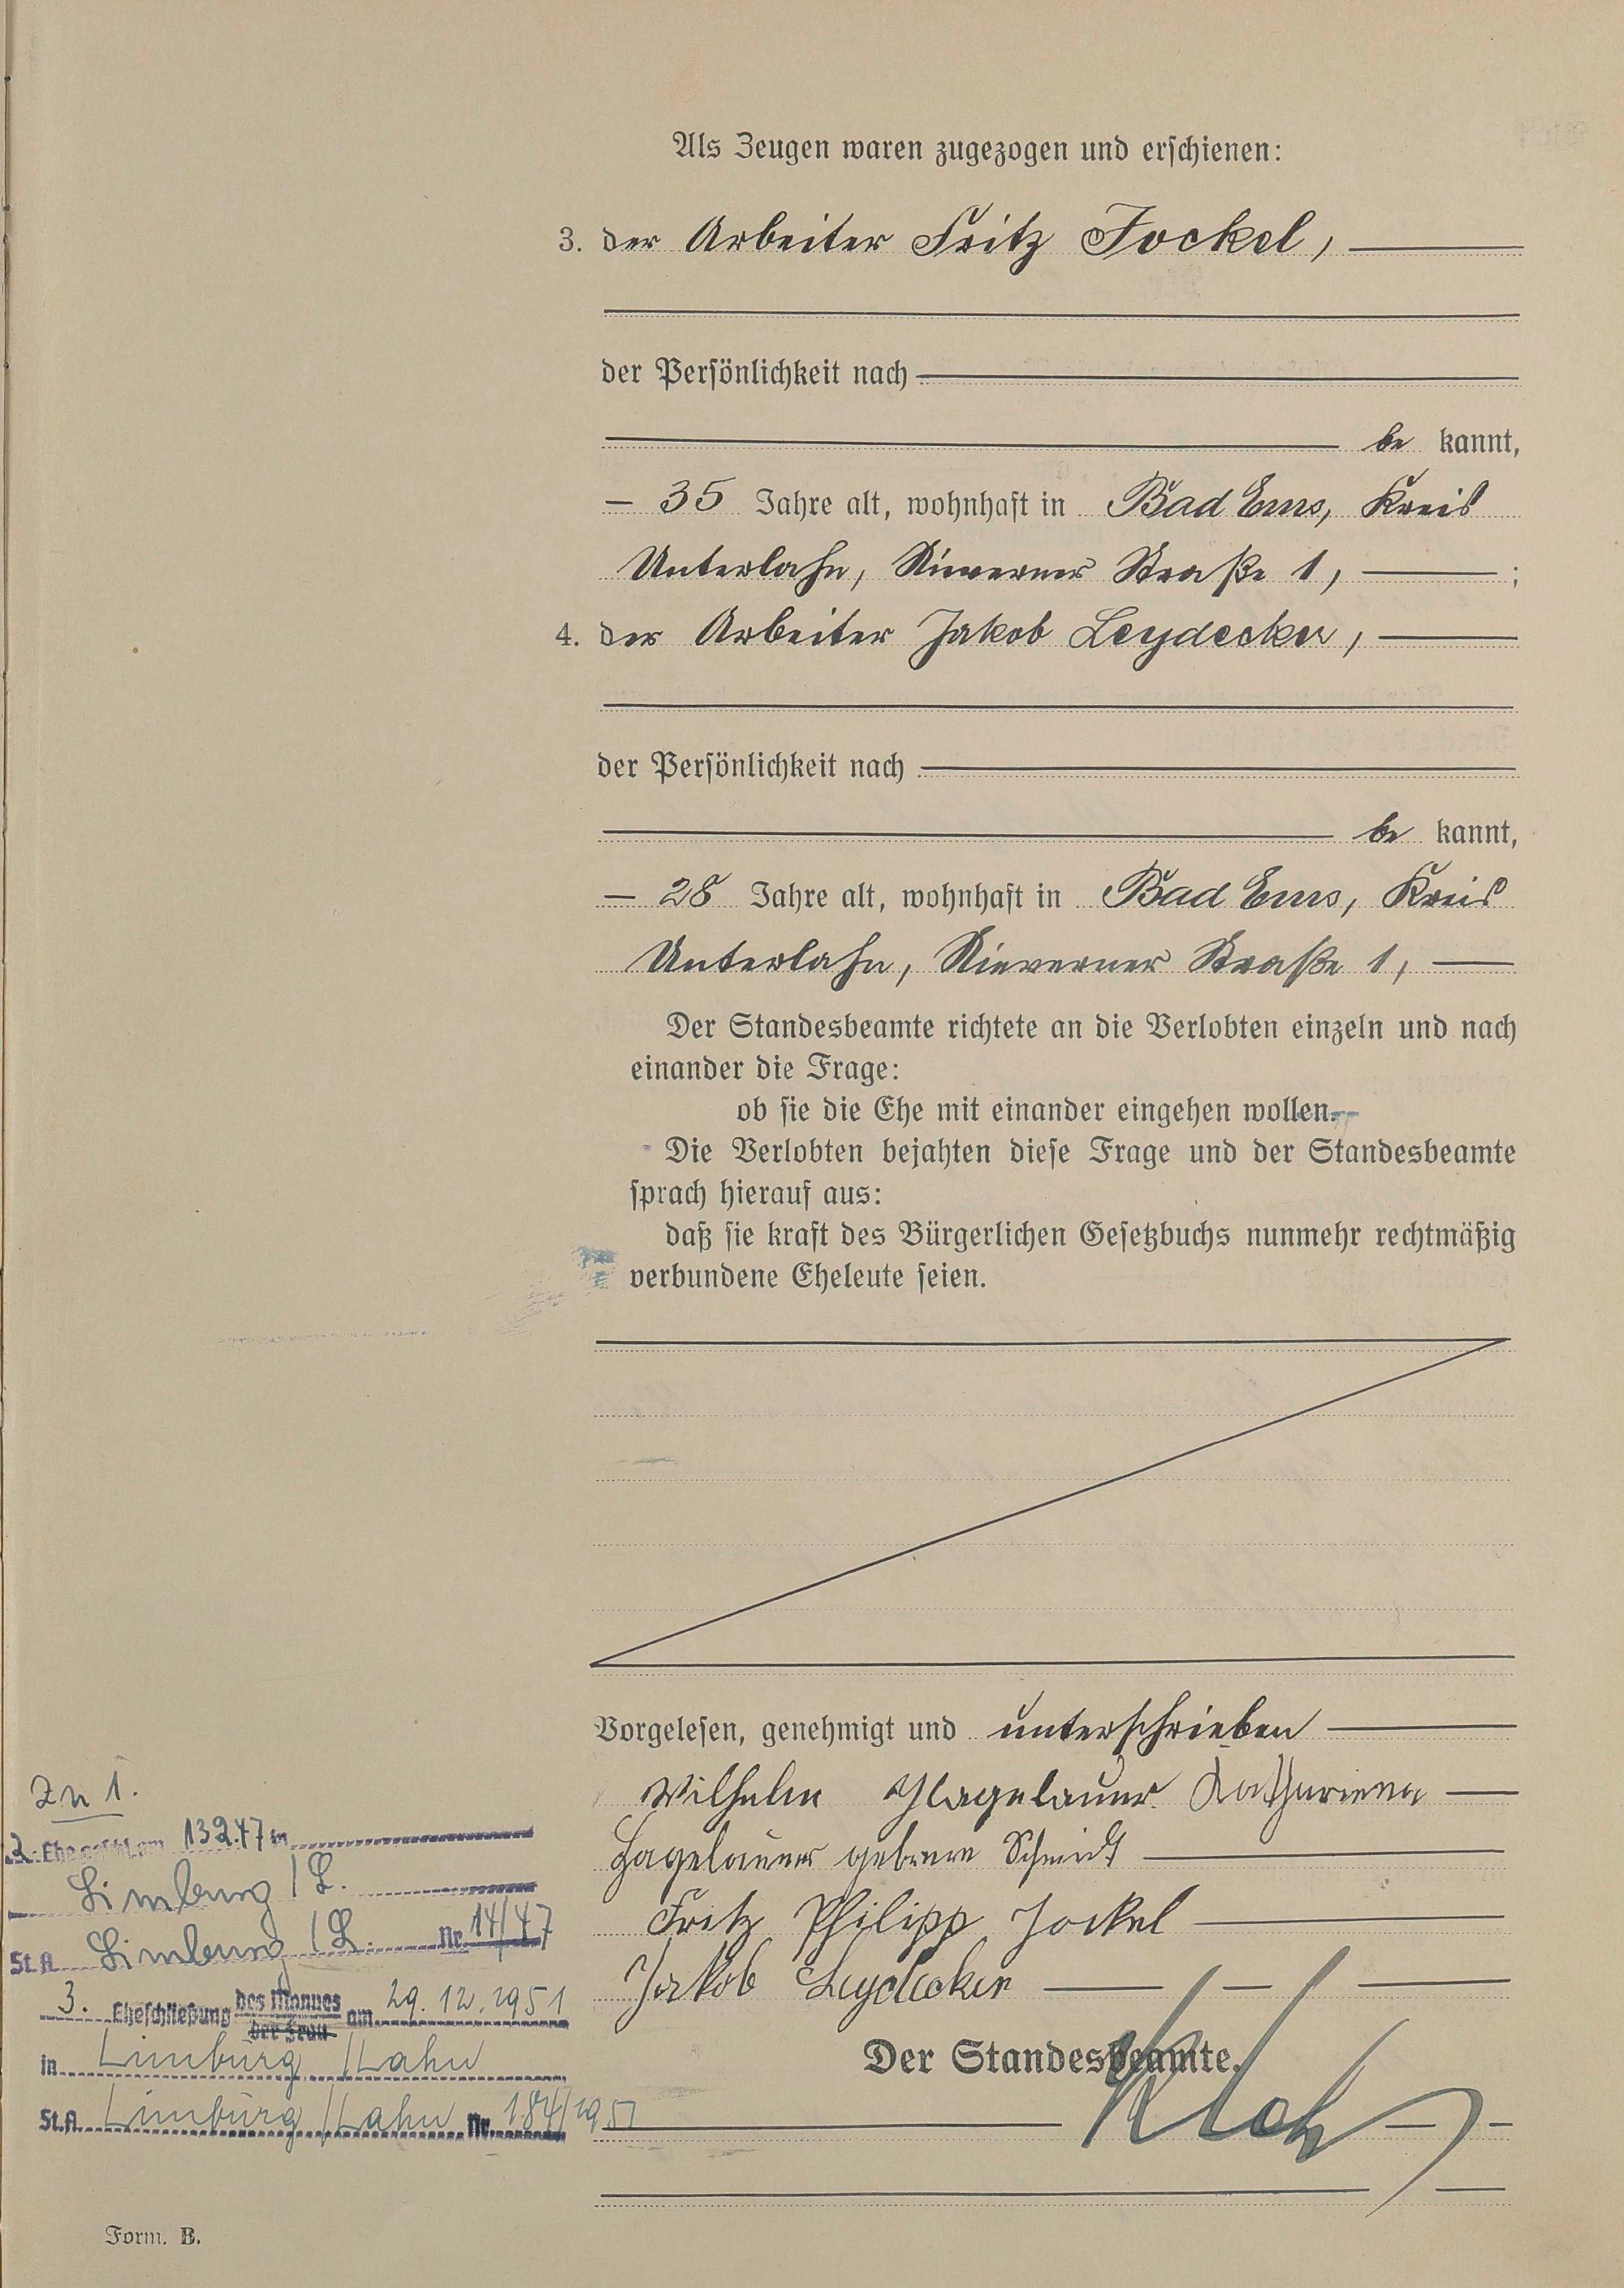 Als Zeugen waren zugezogen und erschienen:
3. der Arbeiter Fritz Jockel,
der Persönlichkeit nach
be kannt,
35 Jahre alt, wohnhaft in Bad Ems, Kreis
Unterlahn, Nieverner Straße 1, ;
4. der Arbeiter Jakob Leydecker,
der Persönlichkeit nach
be kannt,
28 Jahre alt, wohnhaft in Bad Ems, Kreis
Unterlahn, Nieverner Straße 1,
Der Standesbeamte richtete an die Verlobten einzeln und nach
einander die Frage:
ob sie die Ehe mit einander eingehen wollen.
Die Verlobten bejahten diese Frage und der Standesbeamte
sprach hierauf aus:
daß sie kraft des Bürgerlichen Gesetzbuchs nunmehr rechtmäßig
verbundene Eheleute seien.
Vorgelesen, genehmigt und unterschrieben
Wilhelm Hagelauer Katharina
Hagelauer geborene Schmidt
Fritz Philipp Jockel
Jakob Leydecker
Der Standesbeamte.
Zu 1.
2. Ehe geschl. am 13.2.47 in
Limburg/L.
St.A. Limburg/L. Nr. 14/47
3. Eheschließung des Mannes am 29.12.1951
der Frau
in Limburg/Lahn
St.A. Limburg/Lahn Nr. 184/1951
Form. B.